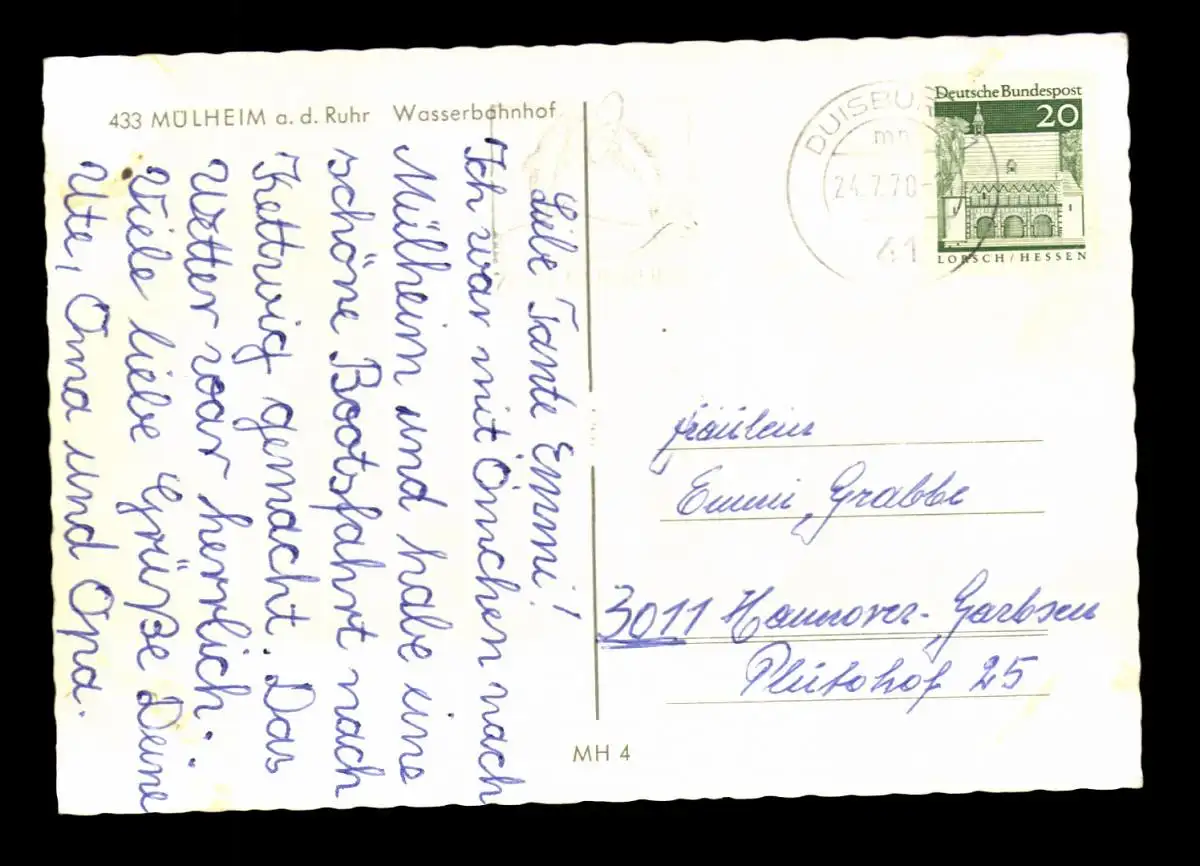 433 MÜLHEIM a. d. Ruhr Wasserbahnhof
Liebe Tante Emmi!
Ich war mit Omchen nach
Mülheim und habe eine
schöne Bootsfahrt nach
Kettwig gemacht. Das
Wetter war herrlich.
Viele liebe Grüße Deine
Ute, Oma und Opa.
MH 4
DUISBURG
mn
24.7.70
41
Deutsche Bundespost
20
LORSCH/HESSEN
Fräulein
Emmi Grabbe
3011 Hannover-Garbsen
Plutohof 25